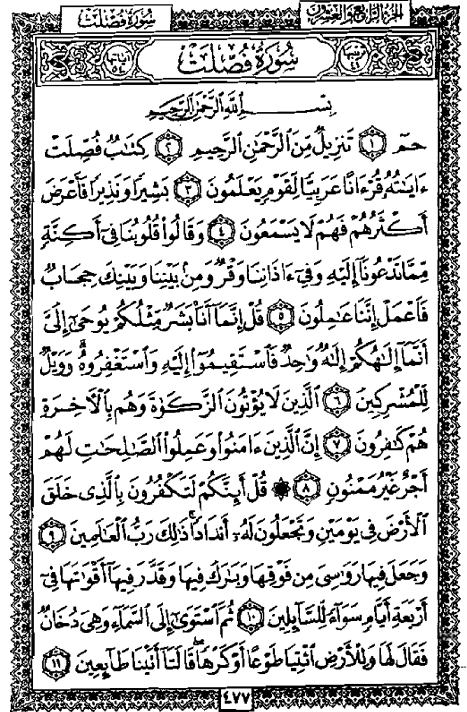 سُورَةُ فُصِّلَتْ الجزء الرابع والعشرون
ترتيبها ٤١ سُورَةُ فُصِّلَتْ آياتها ٥٤
بِسْمِ ٱللَّهِ ٱلرَّحْمَٰنِ ٱلرَّحِيمِ
حمٓ ١ تَنزِيلٌ مِّنَ ٱلرَّحْمَٰنِ ٱلرَّحِيمِ ٢ كِتَٰبٌ فُصِّلَتْ
ءَايَٰتُهُۥ قُرْءَانًا عَرَبِيًّا لِّقَوْمٍ يَعْلَمُونَ ٣ بَشِيرًا وَنَذِيرًا فَأَعْرَضَ
أَكْثَرُهُمْ فَهُمْ لَا يَسْمَعُونَ ٤ وَقَالُوا۟ قُلُوبُنَا فِىٓ أَكِنَّةٍ
مِّمَّا تَدْعُونَآ إِلَيْهِ وَفِىٓ ءَاذَانِنَا وَقْرٌ وَمِنۢ بَيْنِنَا وَبَيْنِكَ حِجَابٌ
فَٱعْمَلْ إِنَّنَا عَٰمِلُونَ ٥ قُلْ إِنَّمَآ أَنَا۠ بَشَرٌ مِّثْلُكُمْ يُوحَىٰٓ إِلَىَّ
أَنَّمَآ إِلَٰهُكُمْ إِلَٰهٌ وَٰحِدٌ فَٱسْتَقِيمُوٓا۟ إِلَيْهِ وَٱسْتَغْفِرُوهُ ۗ وَوَيْلٌ
لِّلْمُشْرِكِينَ ٦ ٱلَّذِينَ لَا يُؤْتُونَ ٱلزَّكَوٰةَ وَهُم بِٱلْءَاخِرَةِ
هُمْ كَٰفِرُونَ ٧ إِنَّ ٱلَّذِينَ ءَامَنُوا۟ وَعَمِلُوا۟ ٱلصَّٰلِحَٰتِ لَهُمْ
أَجْرٌ غَيْرُ مَمْنُونٍ ٨ ۞ قُلْ أَئِنَّكُمْ لَتَكْفُرُونَ بِٱلَّذِى خَلَقَ
ٱلْأَرْضَ فِى يَوْمَيْنِ وَتَجْعَلُونَ لَهُۥٓ أَندَادًا ۚ ذَٰلِكَ رَبُّ ٱلْعَٰلَمِينَ ٩
وَجَعَلَ فِيهَا رَوَٰسِىَ مِن فَوْقِهَا وَبَٰرَكَ فِيهَا وَقَدَّرَ فِيهَآ أَقْوَٰتَهَا فِىٓ
أَرْبَعَةِ أَيَّامٍ سَوَآءً لِّلسَّآئِلِينَ ١٠ ثُمَّ ٱسْتَوَىٰٓ إِلَى ٱلسَّمَآءِ وَهِىَ دُخَانٌ
فَقَالَ لَهَا وَلِلْأَرْضِ ٱئْتِيَا طَوْعًا أَوْ كَرْهًا قَالَتَآ أَتَيْنَا طَآئِعِينَ ١١
٤٧٧